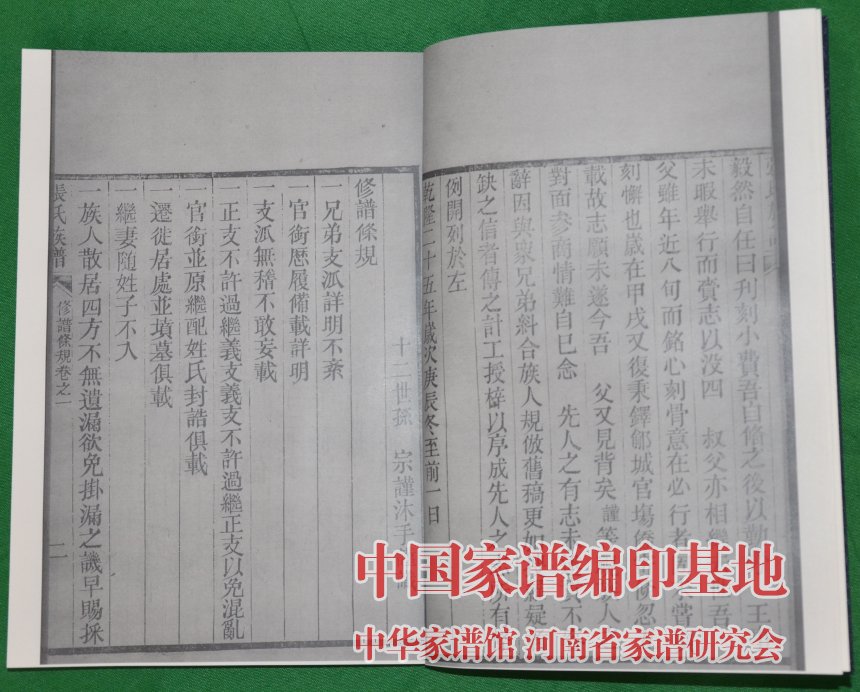 毅然自任曰刋刻小費吾自脩之後以
王
未暇舉行而賫志以没四 叔父亦相
吾
父雖年近八旬而銘心刻骨意在必行者
嘗
刻懈也歳在甲戌又復秉鐸郾城官塲
忽
載故志願未遂今吾 父又見背矣 謹等
人
對面參商情難自巳念 先人之有志未
不
辭因與衆兄弟糾合族人規倣舊稿更如
疑
缺之信者傳之計工授梓以序成先人之
有
例開列於左
乾隆二十五年歲次庚辰冬至前一日
十二世孫 宗謹沐手
修譜條規
一兄弟支派詳明不紊
一官銜歴履備載詳明
一支派無稽不敢妄載
正支不許過繼義支義支不許過繼正支以免混亂
一官銜並原繼配姓氏封誥俱載
一遷徙居處並墳墓俱載
一繼妻随姓子不入
一族人散居四方不無遺漏欲免掛漏之譏早賜採
張氏族譜
修譜條規卷之一
二
中国家谱编印基地
中华家谱馆 河南省家谱研究会